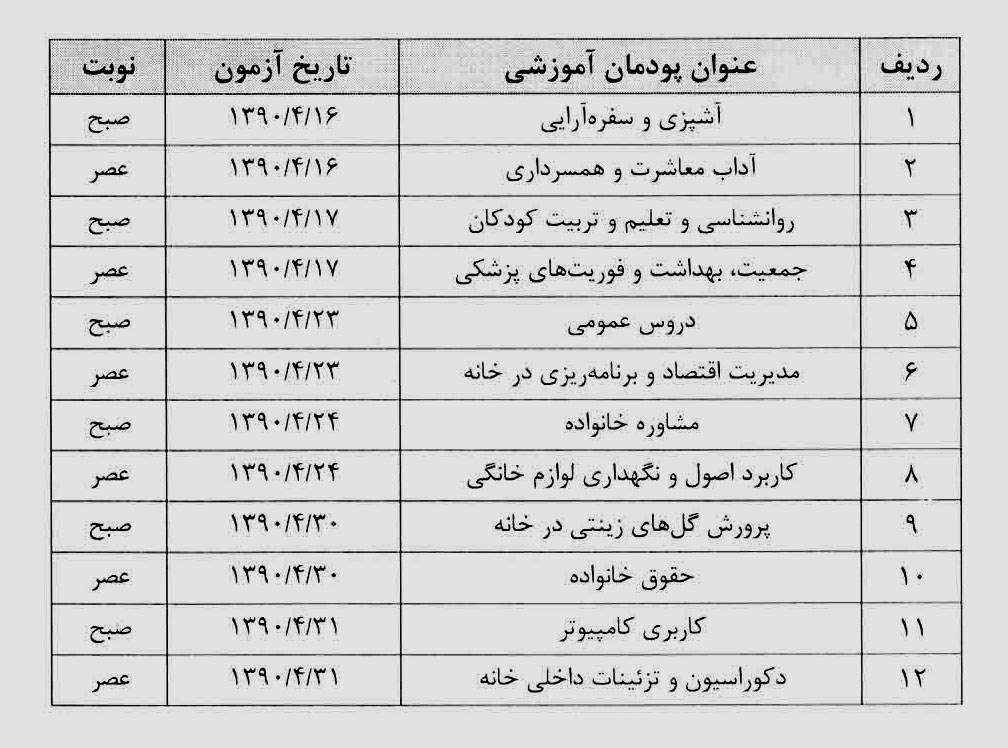 ردیف عنوان پودمان آموزشی تاریخ آزمون نوبت
۱ آشپزی و سفره‌آرایی ۱۳۹۰/۴/۱۶ صبح
۲ آداب معاشرت و همسرداری ۱۳۹۰/۴/۱۶ عصر
۳ روانشناسی و تعلیم و تربیت کودکان ۱۳۹۰/۴/۱۷ صبح
۴ جمعیت، بهداشت و فوریت‌های پزشکی ۱۳۹۰/۴/۱۷ عصر
۵ دروس عمومی ۱۳۹۰/۴/۲۳ صبح
۶ مدیریت اقتصاد و برنامه‌ریزی در خانه ۱۳۹۰/۴/۲۳ عصر
۷ مشاوره خانواده ۱۳۹۰/۴/۲۴ صبح
۸ کاربرد اصول و نگهداری لوازم خانگی ۱۳۹۰/۴/۲۴ عصر
۹ پرورش گل‌های زینتی در خانه ۱۳۹۰/۴/۳۰ صبح
۱۰ حقوق خانواده ۱۳۹۰/۴/۳۰ عصر
۱۱ کاربری کامپیوتر ۱۳۹۰/۴/۳۱ صبح
۱۲ دکوراسیون و تزئینات داخلی خانه ۱۳۹۰/۴/۳۱ عصر